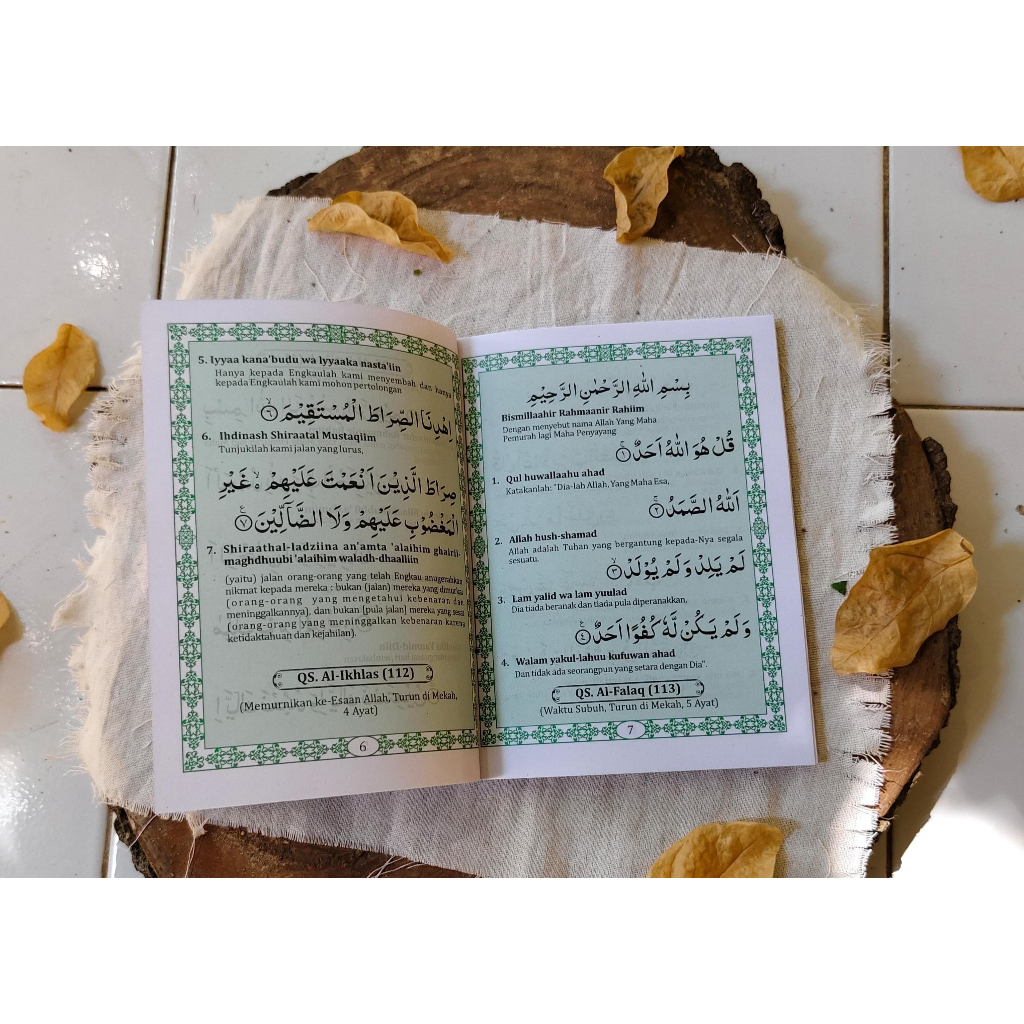 5. Iyyaa kana'budu wa iyyaaka nasta'iin
Hanya kepada Engkaulah kami menyembah dan hanya
kepada Engkaulah kami mohon pertolongan
اِهْدِنَا الصِّرَاطَ الْمُسْتَقِيْمَ ۙ ٦
6. Ihdinash Shiraatal Mustaqiim
Tunjukilah kami jalan yang lurus,
صِرَاطَ الَّذِيْنَ اَنْعَمْتَ عَلَيْهِمْ ۙ غَيْرِ
الْمَغْضُوْبِ عَلَيْهِمْ وَلَا الضَّآلِّيْنَ ࣖ ٧
7. Shiraathal-ladziina an'amta 'alaihim ghairil-
maghdhuubi 'alaihim waladh-dhaalliin
(yaitu) jalan orang-orang yang telah Engkau anugerahkan
nikmat kepada mereka : bukan (jalan) mereka yang dimurkai
(orang-orang yang mengetahui kebenaran dan
meninggalkannya), dan bukan (pula jalan) mereka yang sesat
(orang-orang yang meninggalkan kebenaran karena
ketidaktahuan dan kejahilan).
QS. Al-Ikhlas (112)
(Memurnikan ke-Esaan Allah, Turun di Mekah,
4 Ayat)
6
بِسْمِ اللّٰهِ الرَّحْمٰنِ الرَّحِيْمِ
Bismillaahir Rahmaanir Rahiim
Dengan menyebut nama Allah Yang Maha
Pemurah lagi Maha Penyayang
قُلْ هُوَ اللّٰهُ اَحَدٌ ۚ ١
1. Qul huwallaahu ahad
Katakanlah: "Dia-lah Allah, Yang Maha Esa,
اَللّٰهُ الصَّمَدُ ۚ ٢
2. Allah hush-shamad
Allah adalah Tuhan yang bergantung kepada-Nya segala
sesuatu.
لَمْ يَلِدْ وَلَمْ يُوْلَدْ ۙ ٣
3. Lam yalid wa lam yuulad
Dia tiada beranak dan tiada pula diperanakkan,
وَلَمْ يَكُنْ لَّهٗ كُفُوًا اَحَدٌ ࣖ ٤
4. Walam yakul-lahuu kufuwan ahad
Dan tidak ada seorangpun yang setara dengan Dia".
QS. Al-Falaq (113)
(Waktu Subuh, Turun di Mekah, 5 Ayat)
7